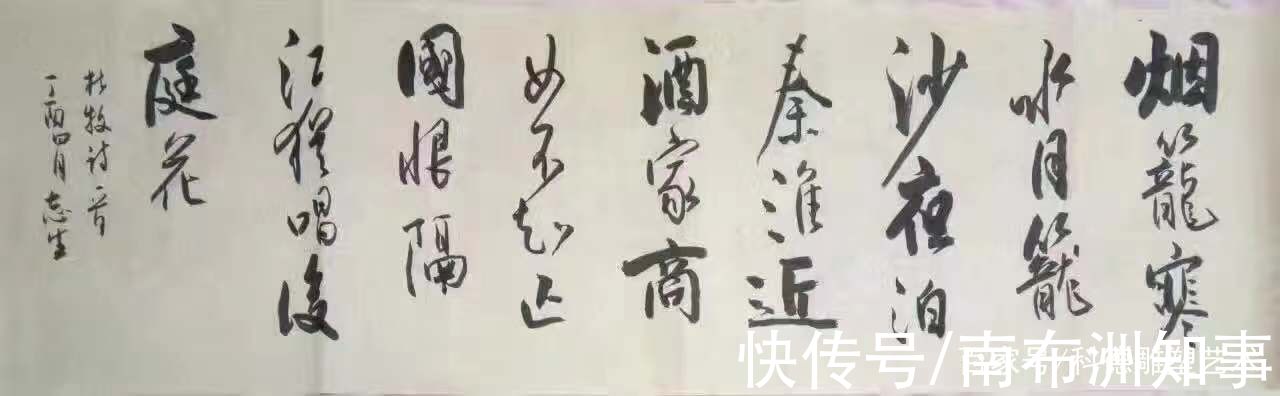 烟籠寒
水月籠
沙夜泊
秦淮近
酒家商
女不知亡
國恨隔
江猶唱後
庭花
杜牧诗一首
丁酉四月志生
快传号/南布洲知事